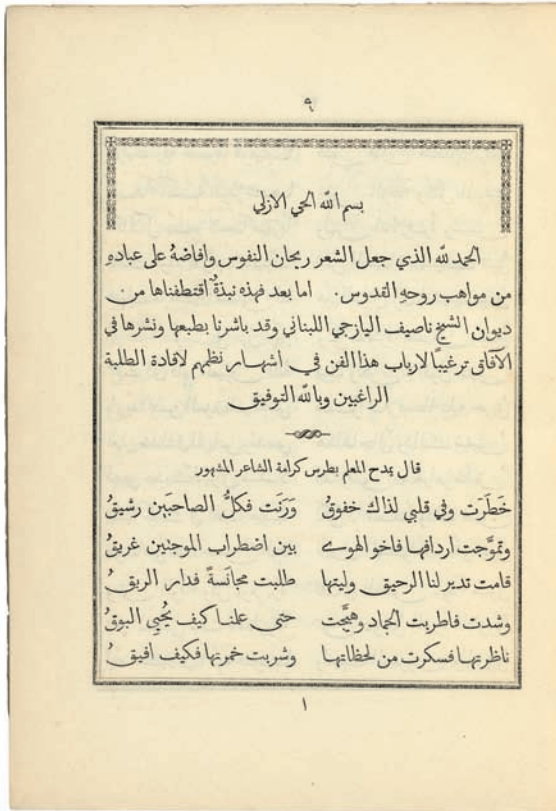 ٩
بسم الله الحي الازلي
الحمد لله الذي جعل الشعر ريحان النفوس وافاضهُ على عبادهِ
من مواهب روحهِ القدوس. اما بعد فهذه نبذةٌ اقتطفناها من
ديوان الشيخ ناصيف اليازجي اللبناني وقد باشرنا بطبعها ونشرها في
الآفاق ترغيبًا لارباب هذا الفن في اشهار نظمهم لافادة الطلبة
الراغبين وبالله التوفيق
قال يمدح المعلم بطرس كرامة الشاعر المشهور
خَطَرَت وفي قلبي لذاك خفوقُ وَرَنَت فكلُّ الصاحبَين رشيقُ
وتموَّجت اردافها فاخو الهوے بين اضطراب الموجتين غريقُ
قامت تدير لنا الرحيق وليتها طلبت مجانَسةً فدار الريقُ
وشدت فاطربت الجماد وهيَّجت حتى علمنا كيف يُحيِى البوقُ
ناظرتها فسكرت من لحظاتها وشربت خمرتها فكيف افيقُ
١